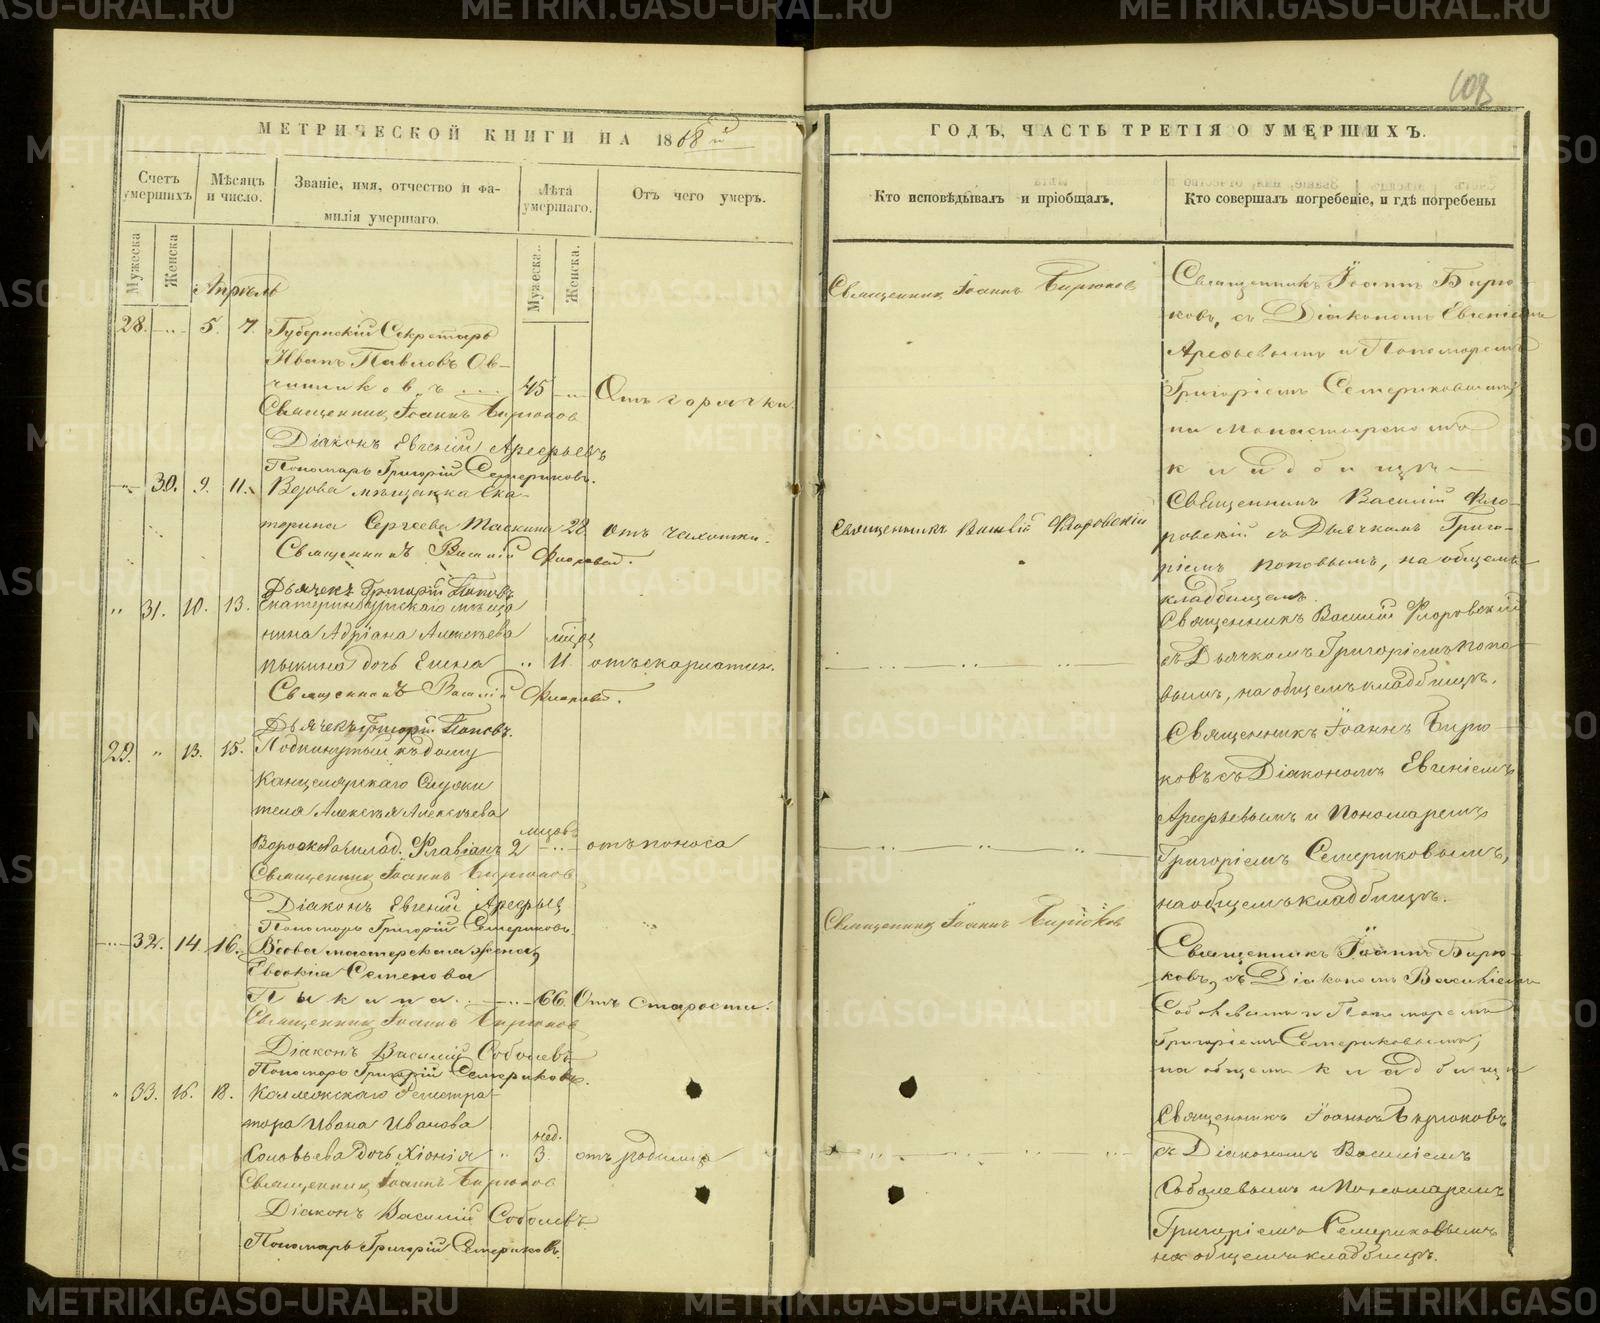 108
МЕТРИЧЕСКОЙ КНИГИ НА 1868 й
Счетъ умершихъ
Мѣсяцъ и число.
Званіе, имя, отчество и фа-
милія умершаго.
Лѣта умершаго.
Отъ чего умеръ.
Мужеска
Женска
Мужеска.
Женска.
Апрѣль
28. 5. 7. Губернскій Секретарь
Иванъ Павловъ Ов-
чинниковъ 45 Отъ горячки.
Священникъ Іоаннъ Бирюков
Діаконъ Евгеній Арефьевъ
Пономарь Григорій Семериковъ.
30. 9. 11. Вдова мѣщанка Ека-
терина Сергеева Таскина 28. отъ чахотки.
Священникъ Василій Флоровск.
Дьячекъ Григорій Поповъ
31. 10. 13. Екатеринбургскаго мѣща
нина Адріана Алексѣева мѣсяц
Пыкина дочь Елена 11 отъ скарлатин.
Священникъ Василій Флоровск.
Дьячекъ Григорій Поповъ.
29. 13. 15. Подкинутый къ дому
Канцелярскаго Служи
теля Алексѣя Алексѣева мѣсяцовъ
млад. Флавіанъ 2 отъ поноса
Священникъ Іоаннъ Бирюков
Діаконъ Евгеній Арефьев
Пономарь Григорій Семериковъ.
32. 14. 16. Вдова мастерская жена,
Евдокія Семенова
Пыкина. 66. Отъ старости.
Священникъ Іоаннъ Бирюков
Діаконъ Василій Соболевъ
Пономарь Григорій Семериковъ.
33. 16. 18. Коллежскаго Регистра-
тора Ивана Иванова нед.
Соловьева дочь Хіонія 3. отъ родимца
Священникъ Іоаннъ Бирюков
Діаконъ Василій Соболевъ
Пономарь Григорій Семериковъ.
ГОДЪ, ЧАСТЬ ТРЕТІЯ О УМЕРШИХЪ.
Кто исповѣдывалъ и пріобщалъ.
Кто совершалъ погребеніе, и гдѣ погребены
Священникъ Іоаннъ Бирюков
Священникъ Іоаннъ Бирю-
ковъ, съ Діакономъ Евгеніемъ
Арефьевымъ и Пономаремъ
Григоріемъ Семериковымъ,
на Монастырскомъ
кладбищѣ
Священникъ Василій Флоровскій
Священникъ Василій Фло-
ровскій съ Дьячкомъ Григо-
ріемъ Поповымъ, на общемъ
кладбищемъ.
Священникъ Василій Флоровскій
съ Дьячкомъ Григоріемъ Попо-
вымъ, на общемъ кладбищѣ.
Священникъ Іоаннъ Бирю-
ковъ съ Діакономъ Евгеніемъ
Арефьевымъ и Пономаремъ
Григоріемъ Семериковымъ,
на общемъ кладбищѣ.
Священникъ Іоаннъ Бирюков
Священникъ Іоаннъ Бирю-
ковъ, съ Діакономъ Василіемъ
Соболевымъ и Пономаремъ
Григоріемъ Семериковымъ,
на общемъ кладбищѣ
Священникъ Іоаннъ Бирюковъ
съ Діакономъ Василіемъ
Соболевымъ и Пономаремъ
Григоріемъ Семериковымъ
на общемъ кладбищѣ.
METRIKI.GASO-URAL.RU